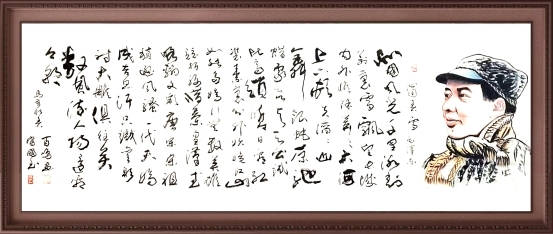 沁园春雪 毛泽东
北国风光千里冰封
万里雪飘望长城
内外惟余莽莽大河
上下顿失滔滔山
舞银蛇原驰
蜡象欲与天公试
比高须晴日看红
装素裹分外妖娆江山
如此多娇引无数英雄
竞折腰惜秦皇汉武
略输文采唐宗宋祖
稍逊风骚一代天骄
成吉思汗只识弯弓
射大雕俱往矣
数风流人物还看
今朝